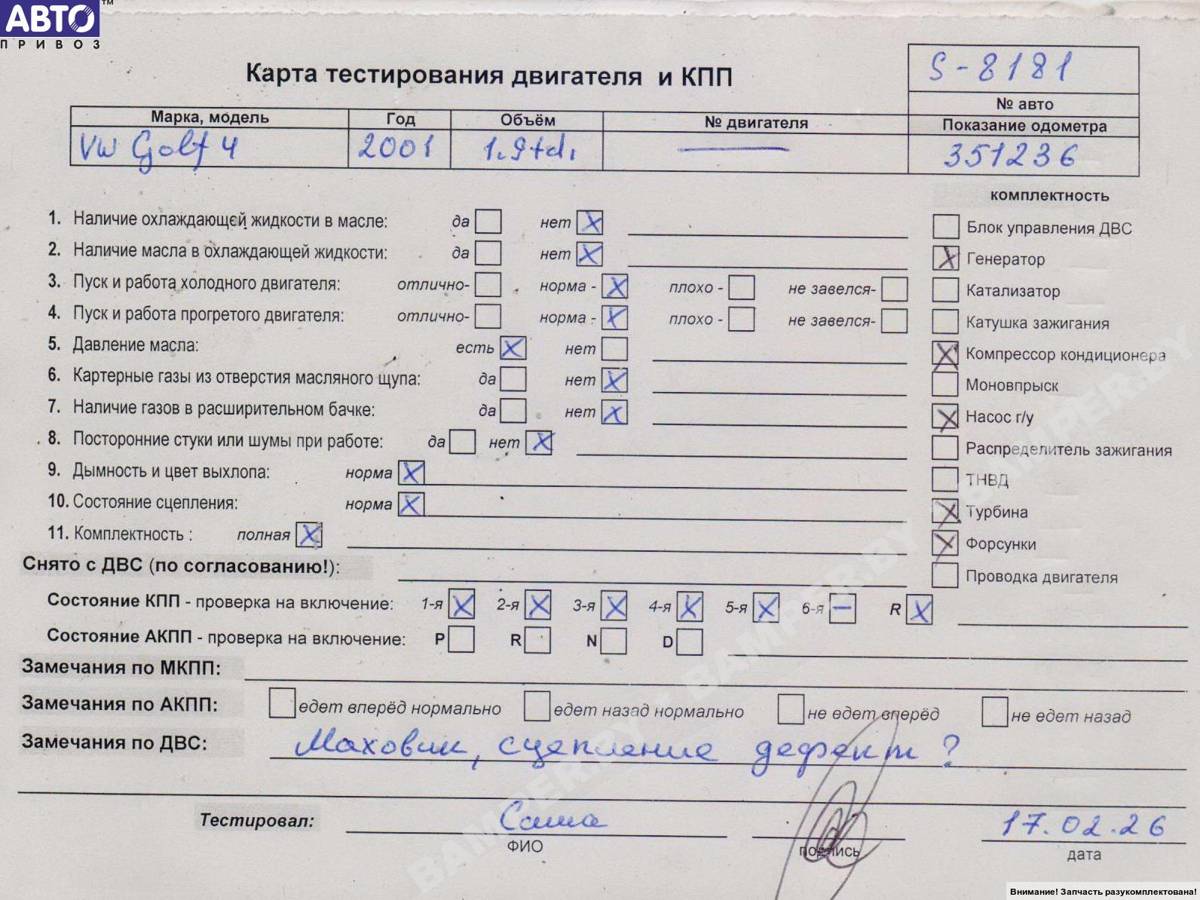 АВТО™
ПРИВОЗ
Карта тестирования двигателя и КПП
S-8181
№ авто
Марка, модель Год Объём № двигателя Показание одометра
VW Golf 4 2001 1.9 tdi — 351236
комплектность
1. Наличие охлаждающей жидкости в масле: да нет X
2. Наличие масла в охлаждающей жидкости: да нет X
3. Пуск и работа холодного двигателя: отлично- норма - X плохо - не завелся-
4. Пуск и работа прогретого двигателя: отлично- норма - X плохо - не завелся-
5. Давление масла: есть X нет
6. Картерные газы из отверстия масляного щупа: да нет X
7. Наличие газов в расширительном бачке: да нет X
8. Посторонние стуки или шумы при работе: да нет X
9. Дымность и цвет выхлопа: норма X
10. Состояние сцепления: норма X
11. Комплектность : полная X
Блок управления ДВС
X Генератор
Катализатор
Катушка зажигания
X Компрессор кондиционера
Моновпрыск
X Насос г/у
Распределитель зажигания
ТНВД
X Турбина
X Форсунки
Проводка двигателя
Снято с ДВС (по согласованию!):
Состояние КПП - проверка на включение: 1-я X 2-я X 3-я X 4-я X 5-я X 6-я — R X
Состояние АКПП - проверка на включение: P R N D
Замечания по МКПП:
Замечания по АКПП: едет вперёд нормально едет назад нормально не едет вперёд не едет назад
Замечания по ДВС: Маховик, сцепление дефект?
Тестировал: Саша 17.02.26
ФИО подпись дата
BAMPER.BY
BAMPER.BY
BAMPER.BY
BAMPER.BY
Внимание! Запчасть разукомплектована!